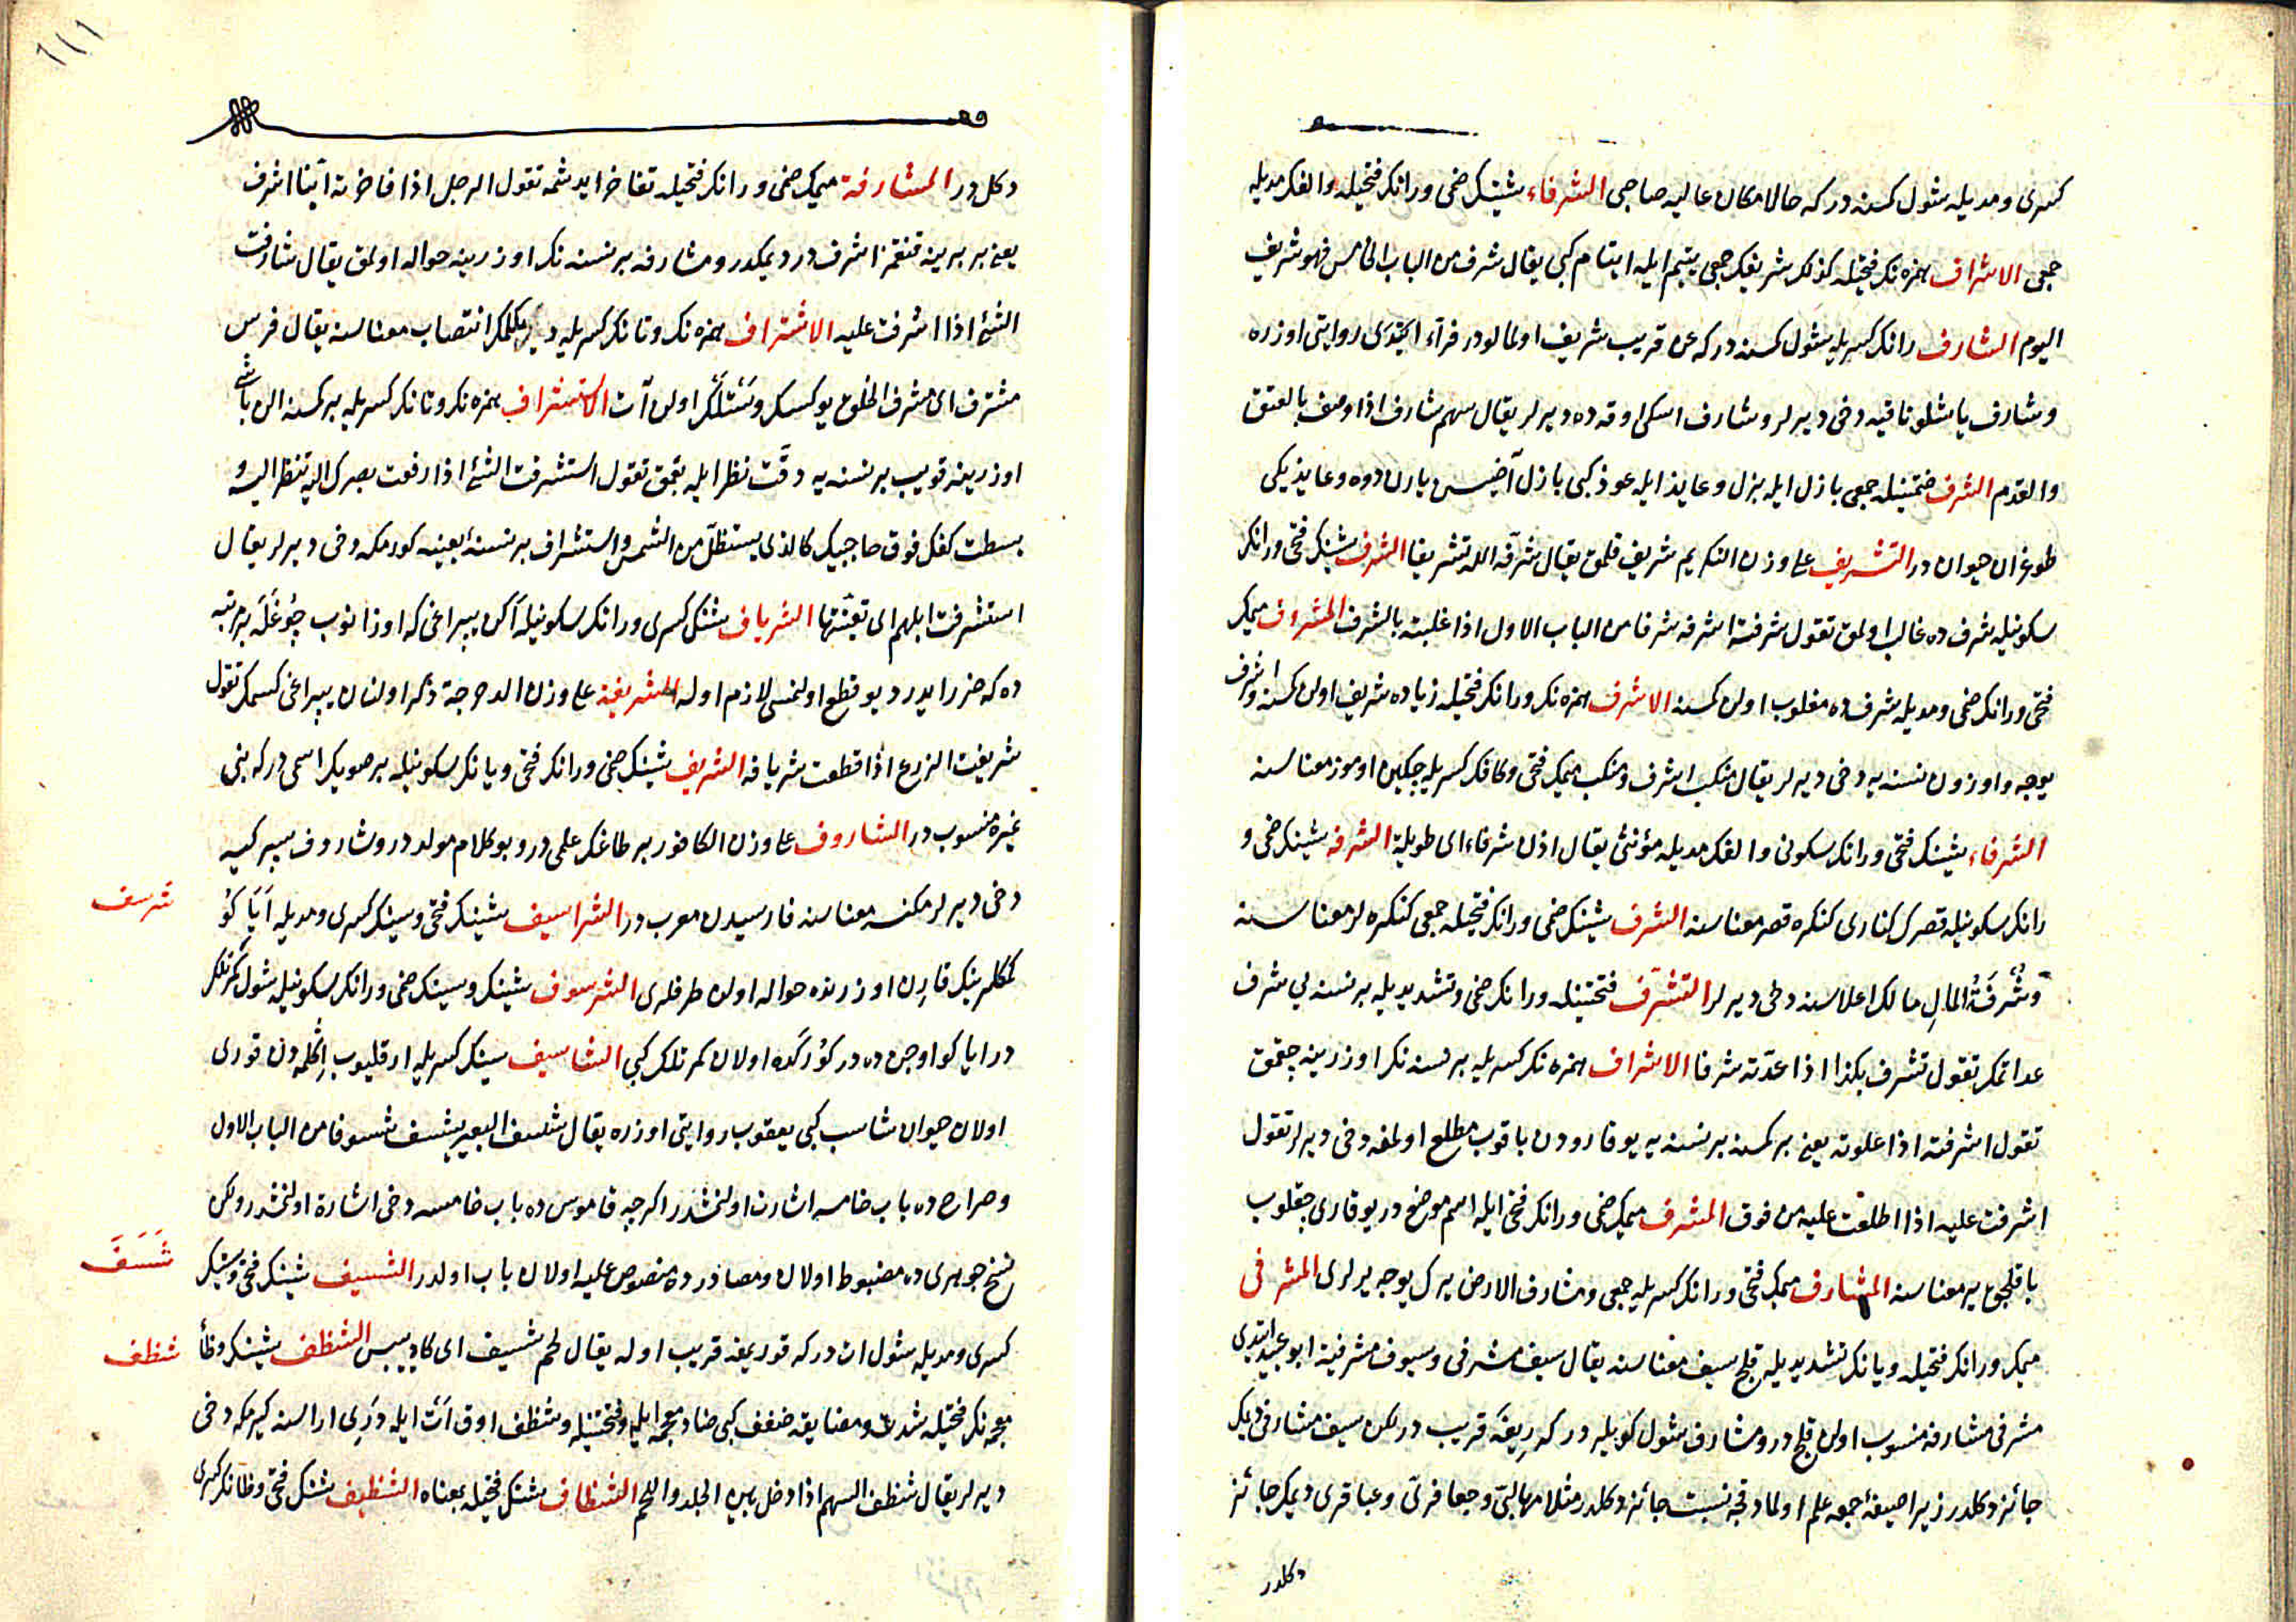 كسرى ومديله شول كمسه دركه حالا مكان عاليه صاحبى الشرفاء شينك ضمى ورانك فتحيله والفك مديله
جمعى الاشراف همزه نك فتحيله كذلك شريفك جمعى يتيم ايله ايتام كبى يقال شرف من الباب الخامس فهو شريف
اليوم الشارف رانك كسريله شول كمسه دركه عن قريب شريف اولمالو در فراء ايتدكى روايتى اوزره
وشارف ياشلو ناقيه دخى ديرلر وشارف اسكى اوقه ده ديرلر يقال سهم شارف اذا وصف بالعتق
والقدم الشرف ضمتينله جمعى بازل ايله بزل وعايذ ايله عوذ كبى بازل آضيسى ياران دوه وعايذ يكى
طوغران حيوان در التشريف على وزن التكريم شريف قلمق يقال شرّفه الله تشريفا الشرف شينك فتحى ورانك
سكونيله شرف ده غالب اولمق تقول شرفته اشرفه شرفا من الباب الاول اذا غلبته بالشرف المشروف ميمك
فتحى ورانك ضمى ومديله شرف ده مغلوب اولن كمسه الاشرف همزه نك ورانك فتحيله زياده شريف اولن كمسه واشرف
يوجه واوزون نسنه يه دخى ديرلر يقال منكب اشرف ومنكب ميمك فتحى وكافك كسريله جكين اوموز معناسنه
الشرفاء شينك فتحى ورانك سكونى والفك مديله مؤنثى يقال اذن شرفاء اى طويلة الشرفه شينك ضمى و
رانك سكونيله قصرك كنارى كنكره قصر معناسنه الشرف شينك ضمى ورانك فتحيله جمعى كنكره لر معناسنه
وشُرفَةُ المالِ مالك اعلاسنه دخى ديرلر التشرّف فتحتينله ورانك ضمى وتشديديله بر نسنه يى شرف
عد اتمك تقول تشرف بكذا اذا عدّته شرفا الاشراف همزه نك كسريله بر نسنه نك اوزرينه چقمق
تقول اشرفته اذا علوته يعنى بر كمسه بر نسنه يه يوقارودن باقوب مطلع اولمغه دخى ديرلر تقول
اشرفت عليه اذا اطلعت عليه من فوق المشرف ميمك ضمى ورانك فتحى ايله اسم موضع در يوقارى چقلوب
باقلجق ير معناسنه المشارف ميمك فتحى ورانك كسريله جمعى ومشارف الارض يرك يوجه يرلرى المشرفى
ميمك ورانك فتحيله ويانك تشديديله قلج سيف معناسنه يقال سيف مشرفى وسيوف مشرفية ابو عبيد ايتدى
مشرفى مشارفه منسوب اولن قلج در ومشارف شول كويلر دركه ريفه قريب در لكن سيف مشارفى ديمك
جائز دكلدر زيرا صيغهٔ جمعه علم اولمادقجه نسبت جائز دكلدر مثلا مهالبىّ وجعافرىّ وعباقرى ديمك جائز
دكلدر
١١١
دكل در المشارفة ميمك ضمى ورانك فتحيله تفاخر ايدشمه تقول الرجل اذا فاخرته اينا اشرف
يعنى بر برينه قنقمز اشرف در ديمكدر ومشارفه بر نسنه نك اوزرينه حواله اولمق يقال شارفت
الشئ اذا اشرفت عليه الاشتراف همزه نك وتانك كسريله ديكلمك انتصاب معناسنه يقال فرس
مشترف اى مشرف الخلق يوكسك اولن آت الاستشراف همزه نك وتانك كسريله بر كمسه الن باشى
اوزرينه قويب بر نسنه يه دقت نظر ايله بقمق تقول استشرفت الشئ اذا رفعت بصرك اليه تنظر اليه و
بسطت كفك فوق حاجبيك كالذى يستظلّ من الشمس واستشراف بر نسنه ا بعينه كورمكه دخى ديرلر يقال
استشرفت ابلهم اى تعيّنتها الشرياف شينك كسرى ورانك سكونيله اكن يپراغى كه اوزانوب چوغله بر مرتبه
ده كه ضرر ايدر ديو قطع اولنمسى لازم اوله الشريفة على وزن الدحرجة ذكر اولنان يپراغى كسمك تقول
شريفت الزرع اذا قطعت شريافه الشريف شينك ضمى ورانك فتحى ويانك سكونيله بر صويك اسمى دركه بنى
غيره منسوب در الشاروف على وزن الكافور بر طاغك علمى در وبو كلام مولد در وشاروف سپركيه
دخى ديرلر مكنسه معناسنه فارسيدن معرب در الشراسيف شينك فتحى وسينك كسرى ومديله اَيَاكُو
شرسف
كمكلرينك قارن اوزرنده حواله اولن طرفلرى الشرسوف شينك وسينك ضمى ورانك سكونيله شول كمرتلك
در اياكو اوجن ده در كوركده اولان كمرتلك كبى الشاسيف سينك كسريله ارقليوب اكلمه دن قورى
اولان حيوان شاسب كبى يعقوب روايتى اوزره يقال شسف البعير يشسف شسوفا من الباب الاول
وصراح ده باب خامسه اشارت اولنمشدر اكرجه قاموس ده باب خامسه دخى اشارة اولنمشدر ولكن
نسخ جوهرى ده مضبوط اولان ومصادر ده منصوص عليه اولان باب اولدر الشسيف شينك فتحى وسينك
شَسَفَ
كسرى ومديله شول ات دركه قوريمغه قريب اوله يقال لحم شسيف اى كاد ييبس الشظف شينك وظا
شظف
معجمه نك فتحيله شدت ومضايقه ضفف كبى ضاد معجمه ايله وفتحتينله وشظف اوق ات ايله درى اراسنه كيرمكه دخى
ديرلر يقال شظف السهم اذا دخل بين الجلد واللحم الشظاف شينك فتحيله بمعناه الشظيف شينك فتحى وظانك كسرى